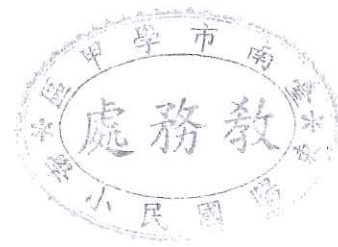 臺南市學甲區
教務處
東陽國民小學